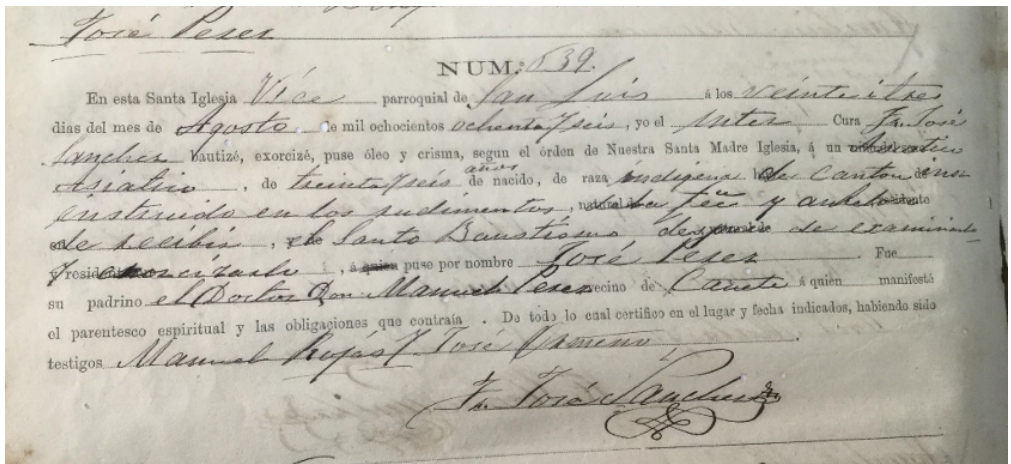 José Peres
NUM. 639.
En esta Santa Iglesia Vice parroquial de San Luis á los veinte i tres
dias del mes de Agosto de mil ochocientos ochenta y seis, yo el Inter Cura Fr. José
Sanches bautizé, exorcizé, puse óleo y crisma, segun el órden de Nuestra Santa Madre Iglesia, á un
Asiatico, de treinta y seis años de nacido, de raza indigena de Canton
instruido en los rudimentos, la feé y
de recibir, el Santo Baustismo de examinado
y exorcizado, á quien puse por nombre José Peres Fue
su padrino el Doctor Don Manuel Peres vecino de Cañete á quién manifesté
el parentesco espiritual y las obligaciones que contraía. De todo lo cual certifico en el lugar y fecha indicados, habiendo sido
testigos Manuel Rojas y José Ormeno.
Fr. José Sanches